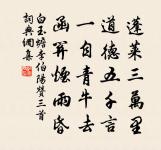 蓬萊三萬里
道德五千言
一自青牛去
函關煙雨昏
白玉蟾李伯陽贊三首
詞典網集